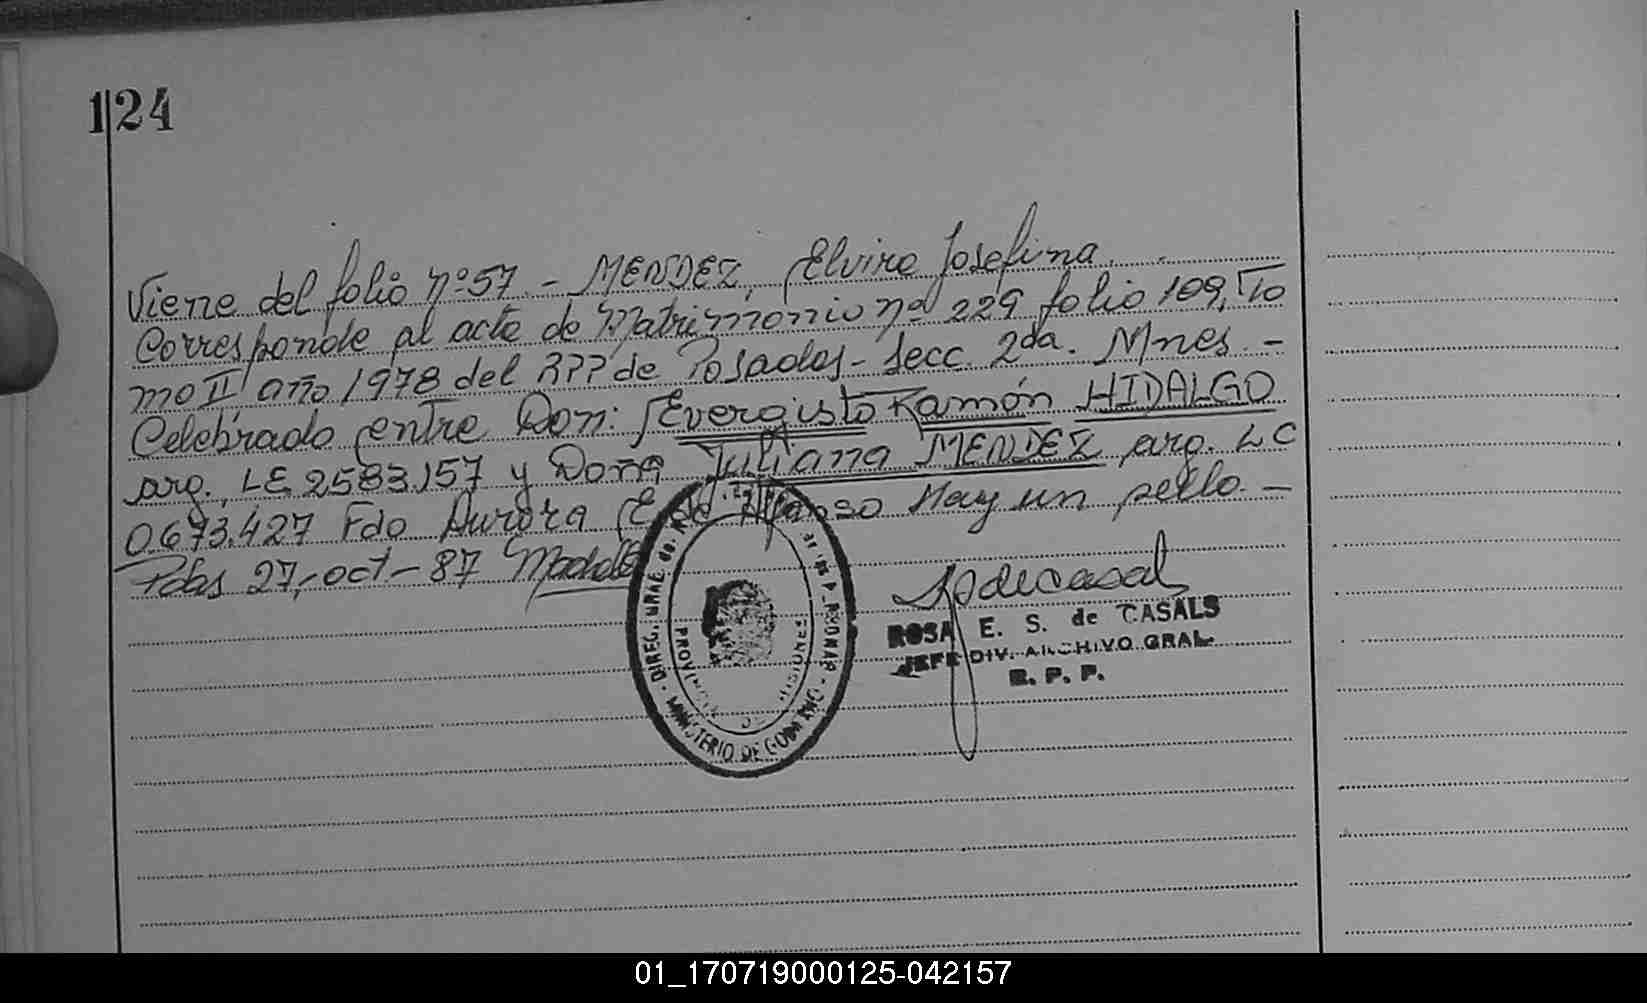 124
Viene del folio nº 57.- MENDEZ, Elvira Josefina.
Corresponde al acta de Matrimonio nº 229 folio 109, To
mo II año 1978 del RPP de Posadas - Secc. 2da. Mnes. -
Celebrado entre Don: Evergisto Ramón HIDALGO
arg. LE 2583157 y Doña Juliana MENDEZ arg. LC
0.673.427 Fdo Aurora Alfonso Hay un sello. -
Pdas 27,-oct-87
DIREC. GRAL de
MINISTERIO DE GOBIERNO
PROVINCIA DE MISIONES
ROSA E. S. de CASALS
JEFE DIV. ARCHIVO GRAL.
R. P. P.
01_170719000125-042157